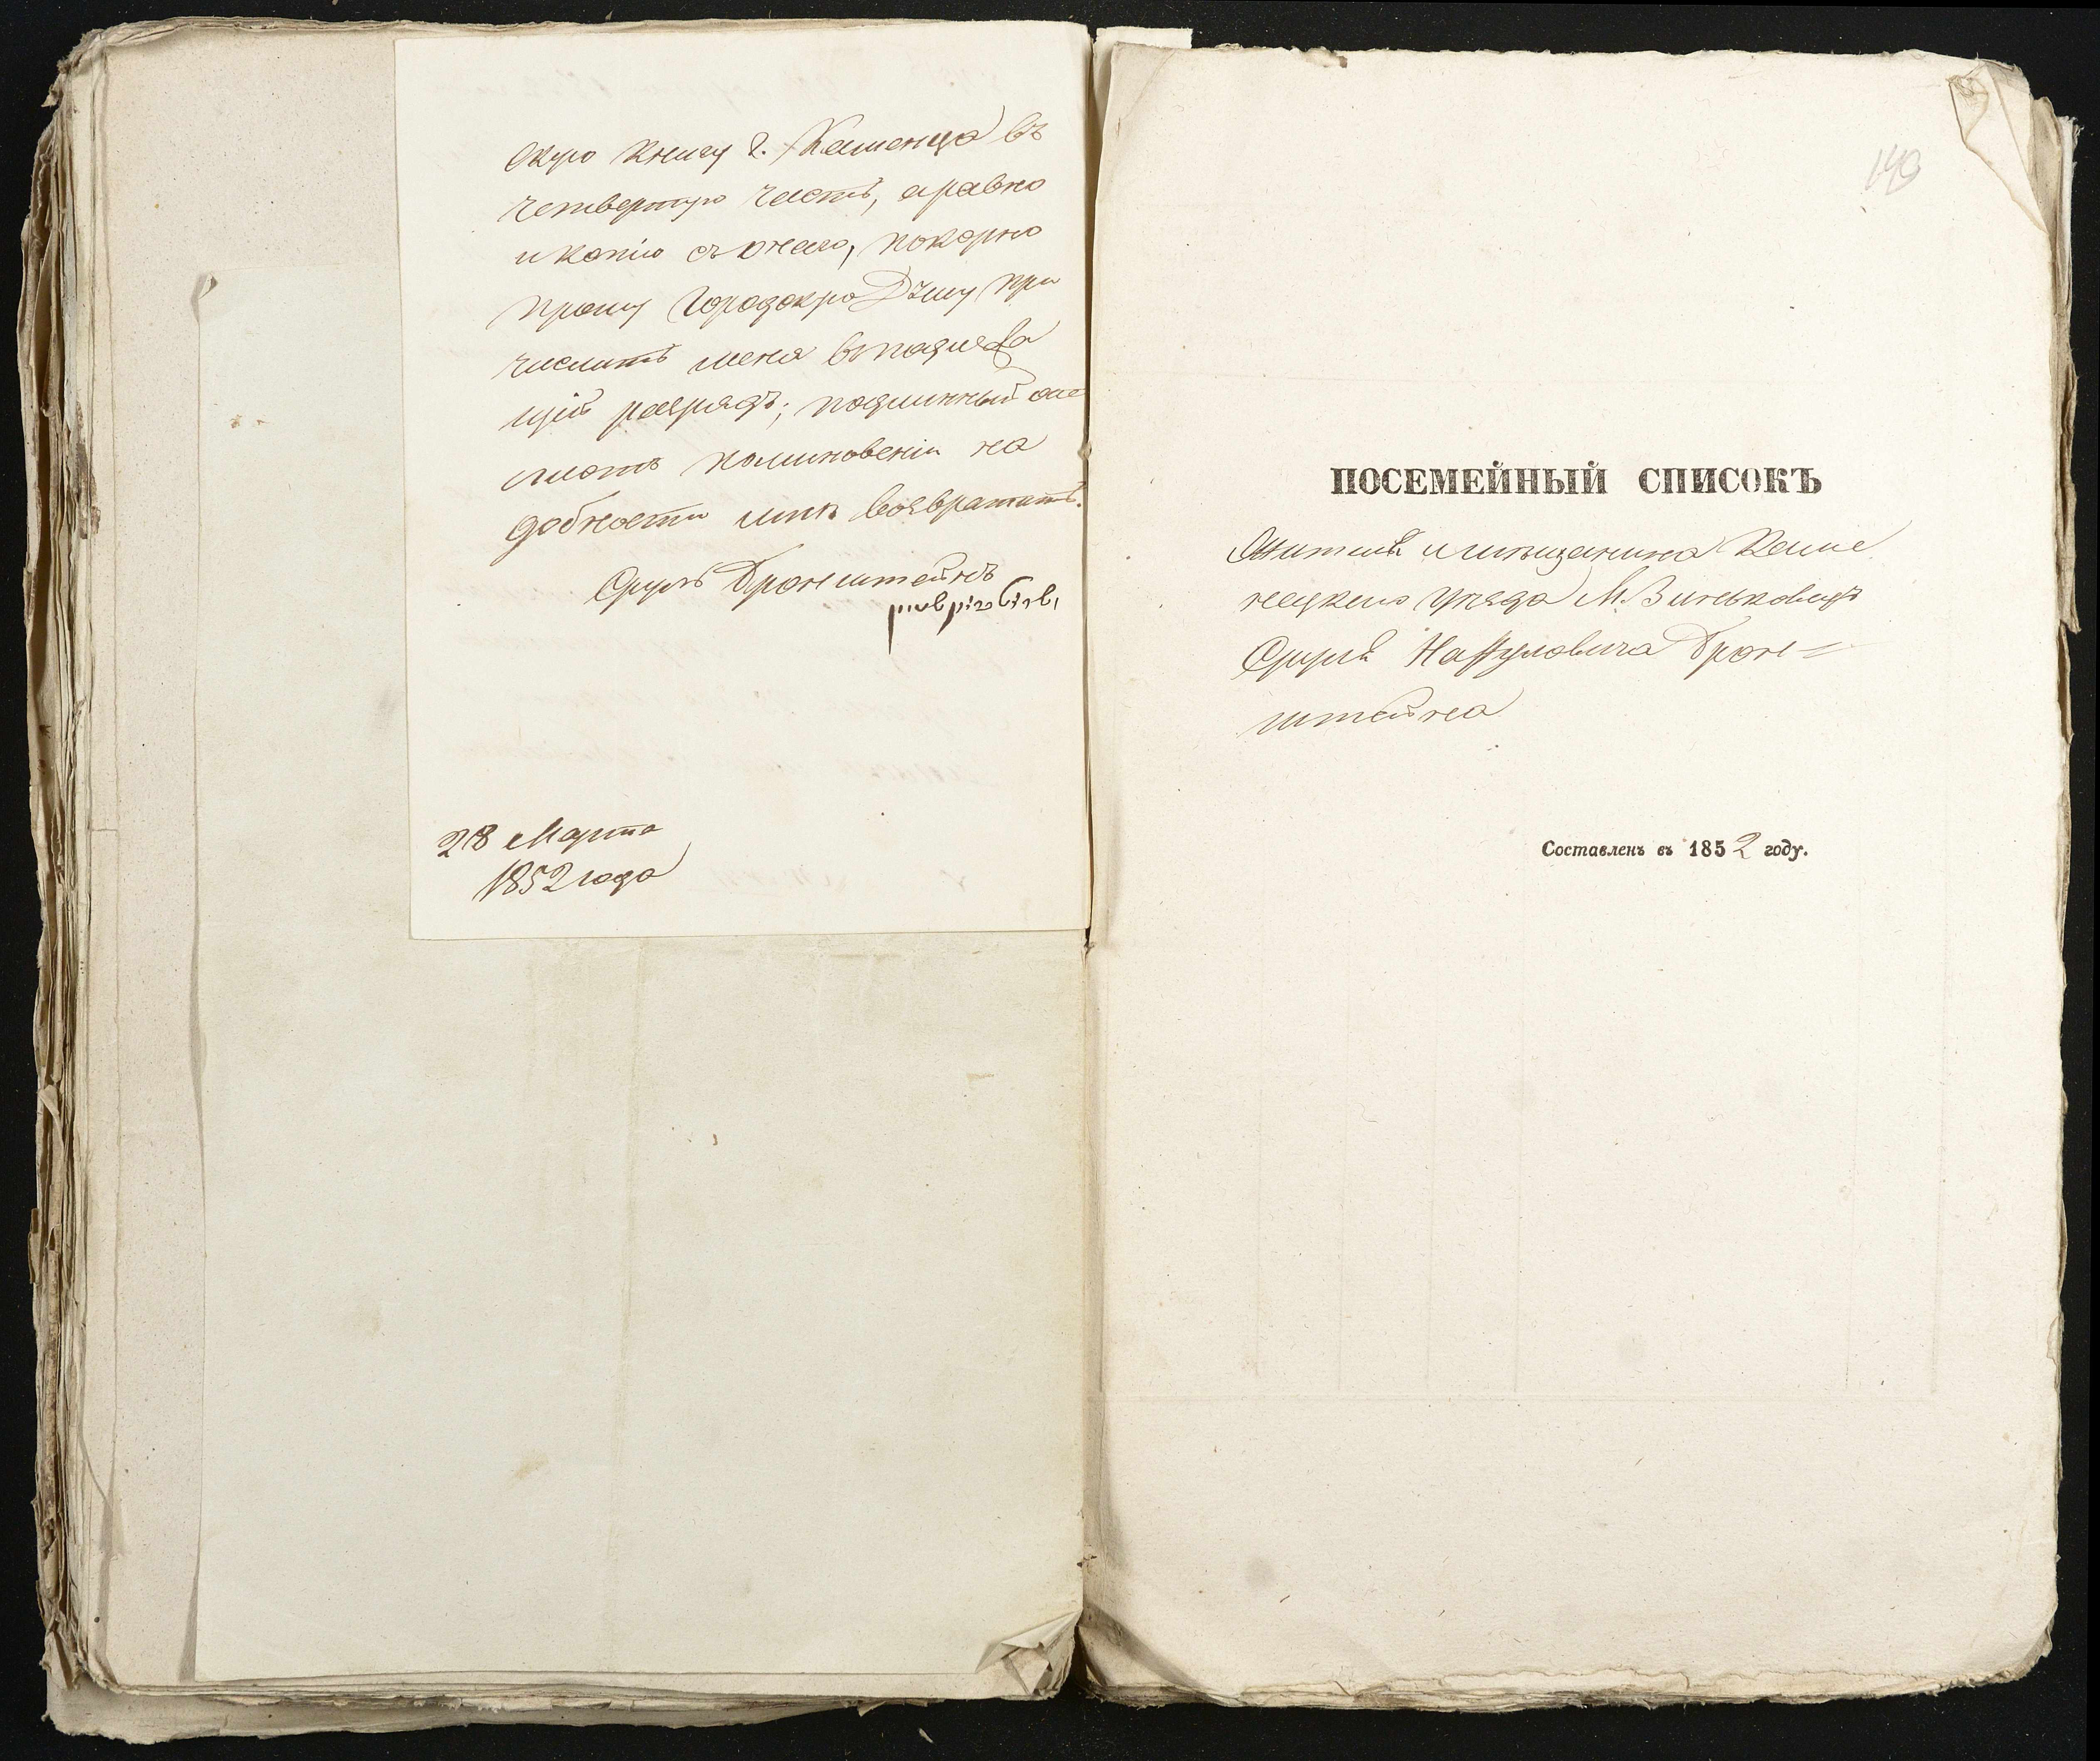 скую книгу г. Каменца въ
четвертую часть, а равно
и копію съ онаго, покорно
прошу Городскую Думу при
числить меня въ подлежа
щій разрядъ; подлинный же
листъ по минованіи на
добности мнѣ возвратить.
Сруль Бронштейнъ
28 Марта
1852 года
143
ПОСЕМЕЙНЫЙ СПИСОКЪ
Жителя и мѣщанина Каме
нецкаго уѣзда М. Виньковецъ
Сруля Бронъ=
штейна
Составленъ въ 1852 году.